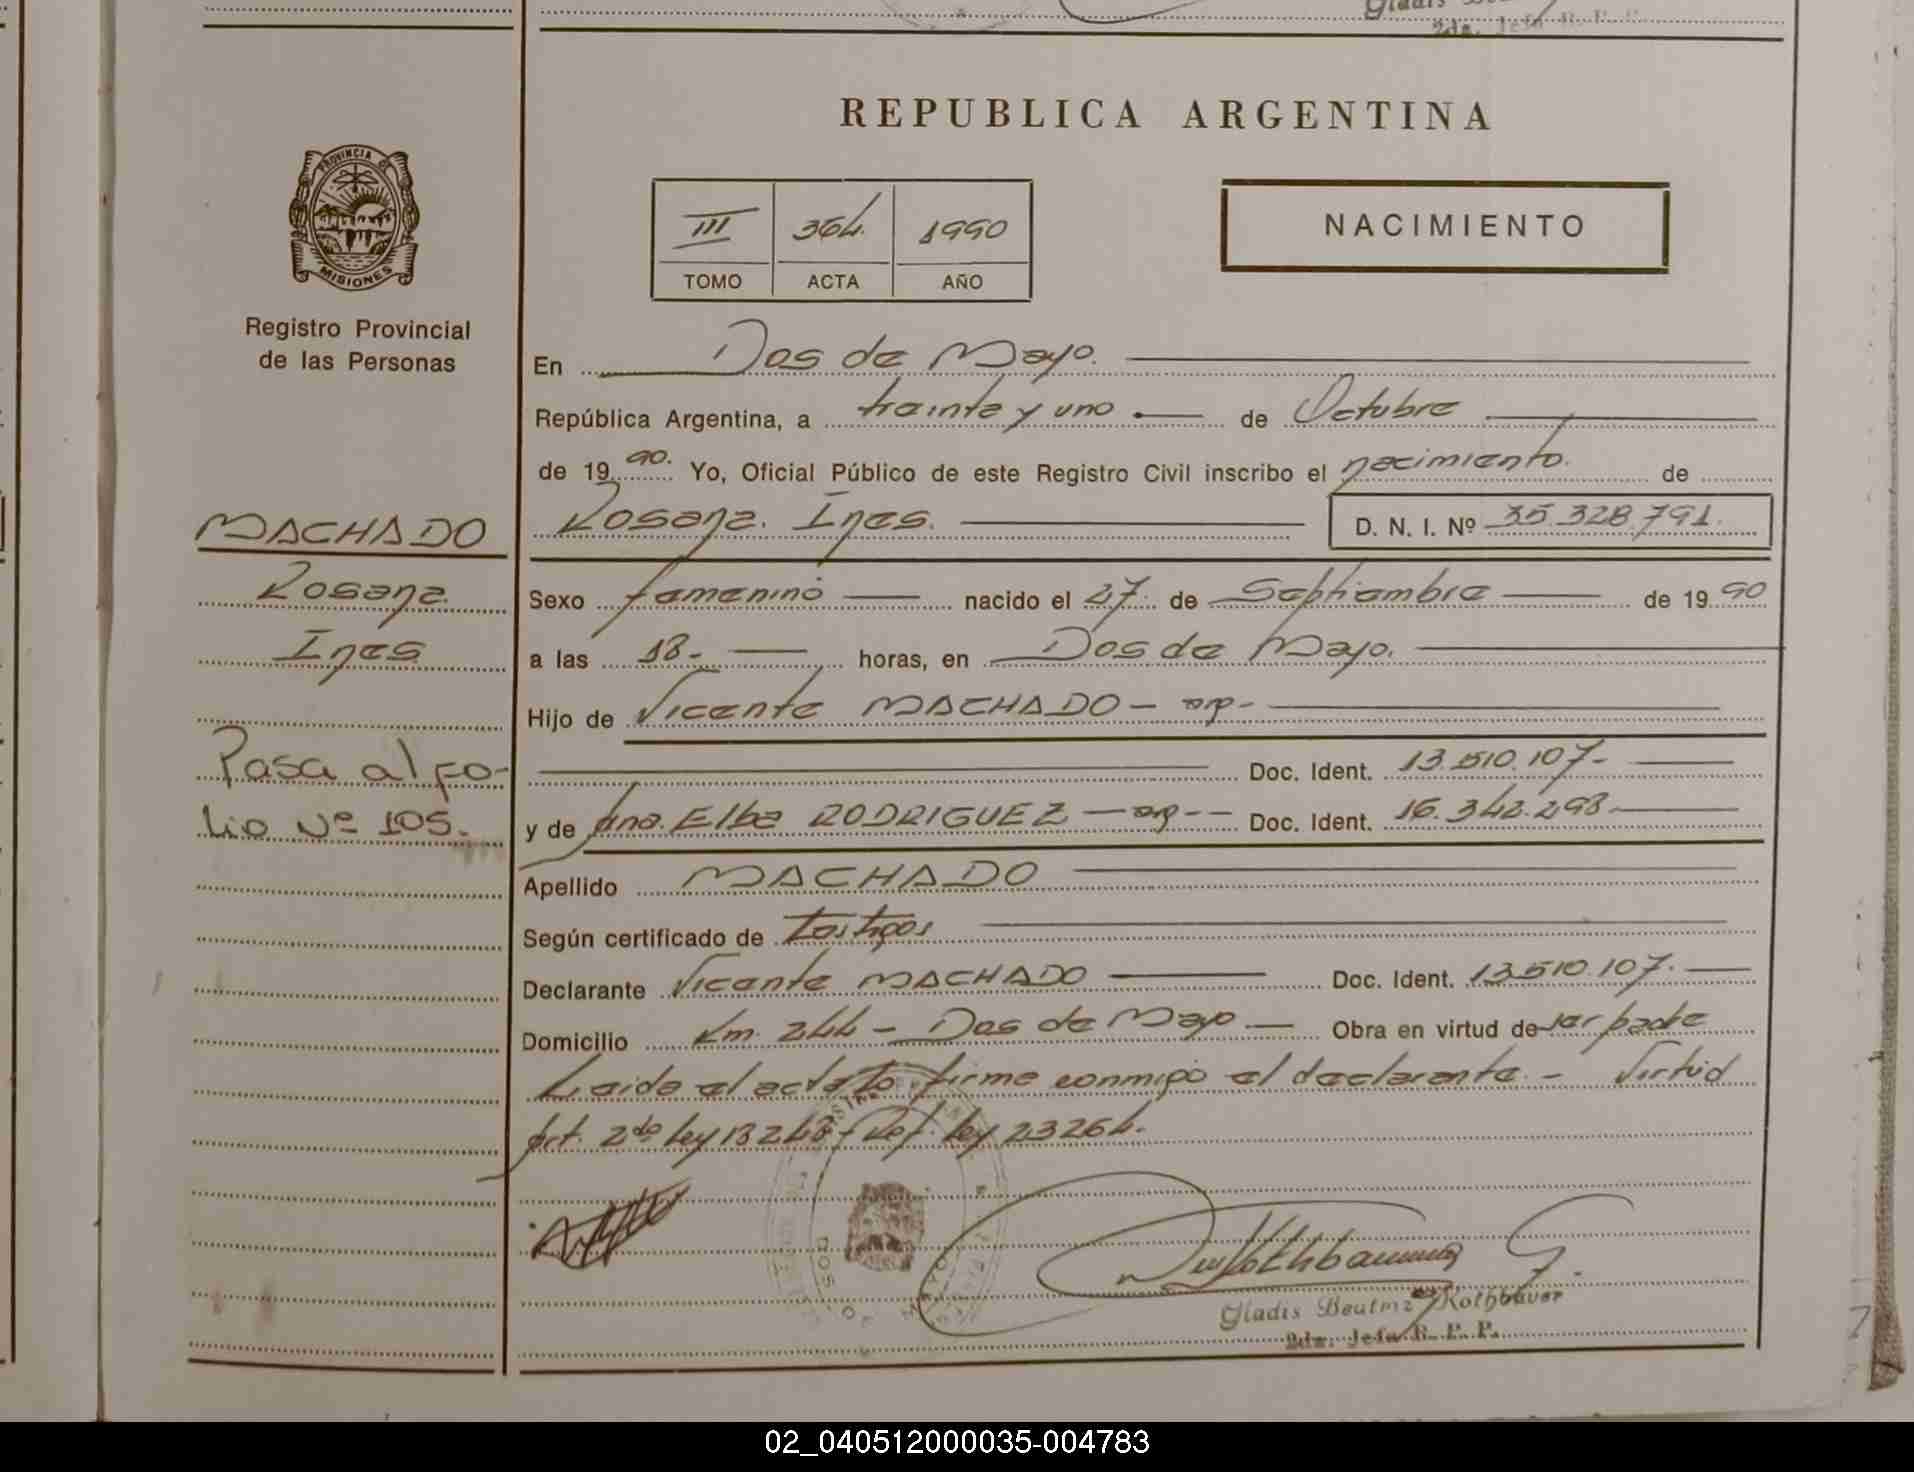 Gladis
2da. Jefa R. P. P.
REPUBLICA ARGENTINA
PROVINCIA DE
MISIONES
Registro Provincial
de las Personas
III 364. 1990
TOMO ACTA AÑO
NACIMIENTO
En Dos de Mayo.
República Argentina, a treinta y uno de Octubre
de 1990. Yo, Oficial Público de este Registro Civil inscribo el nacimiento. de
Rosana. Ines. D. N. I. Nº 35.328.791.
MACHADO
Rosana
Ines
Pasa al fo-
lio Nº 105.
Sexo femenino nacido el 27. de Septiembre de 1990
a las 18.- horas, en Dos de Mayo.
Hijo de Vicente MACHADO - arg-
Doc. Ident. 13.510.107-
y de Ana. Elba RODRIGUEZ - arg-- Doc. Ident. 16.342.298-
Apellido MACHADO
Según certificado de testigos
Declarante Vicente MACHADO Doc. Ident. 13.510.107.
Domicilio Km. 244 - Dos de Mayo - Obra en virtud de ser padre
Leida el acta to firme conmigo el declarante.- Virtud
Art. 2do Ley 18248- Ref. Ley 23264.
DOS DE MAYO
Rothbauer G.
Gladis Beatriz Rothbauer
2da. Jefa R. P. P.
02_040512000035-004783